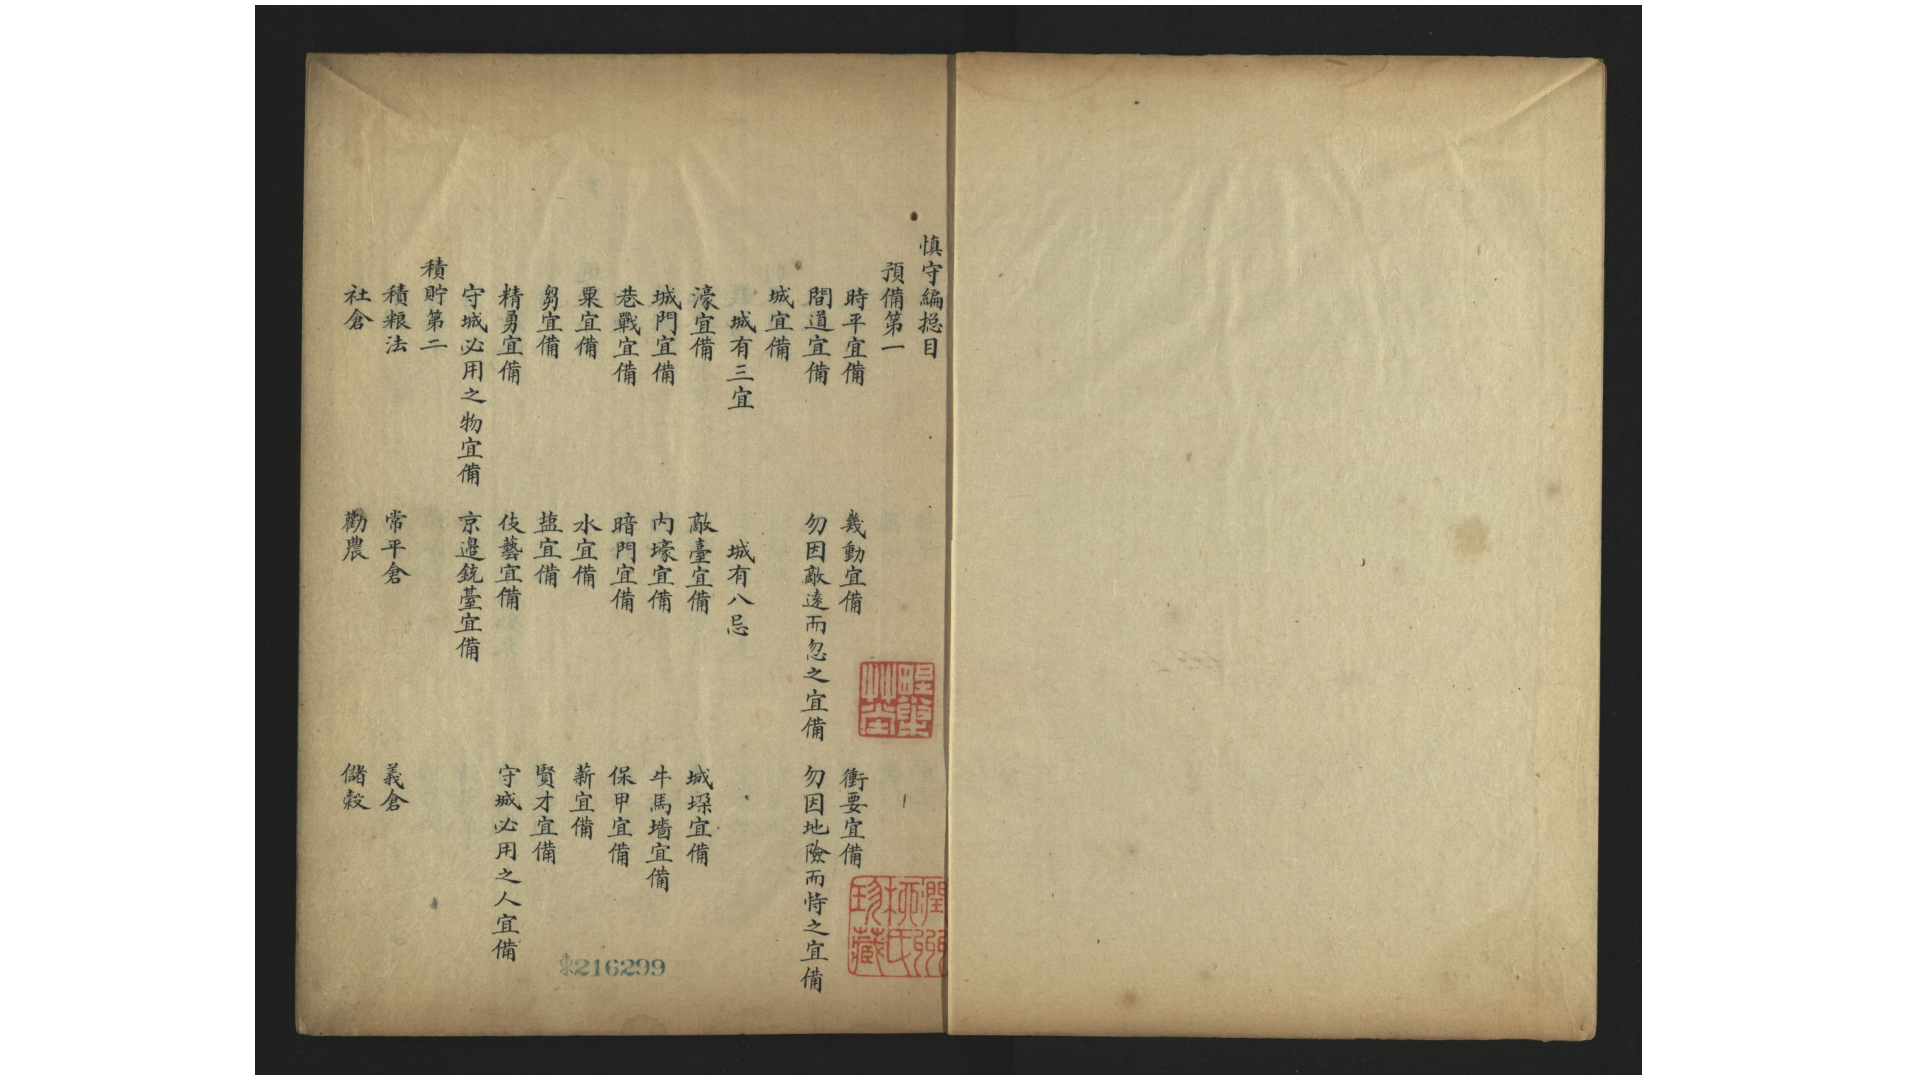 慎守編捴目
預備第一
時平宜備 幾動宜備 衝要宜備
間道宜備 勿因敵遠而忽之宜備 勿因地險而恃之宜備
城宜備
城有三宜 城有八忌
濠宜備 敵臺宜備 城垜宜備
城門宜備 内壕宜備 牛馬墻宜備
巷戰宜備 暗門宜備 保甲宜備
粟宜備 水宜備 薪宜備
芻宜備 塩宜備 賢才宜備
精勇宜備 伎藝宜備 守城必用之人宜備
守城必用之物宜備 京邉銃臺宜備
積貯第二
積粮法 常平倉 義倉
社倉 勸農 儲穀
潤州
柳氏
珍藏
東216299